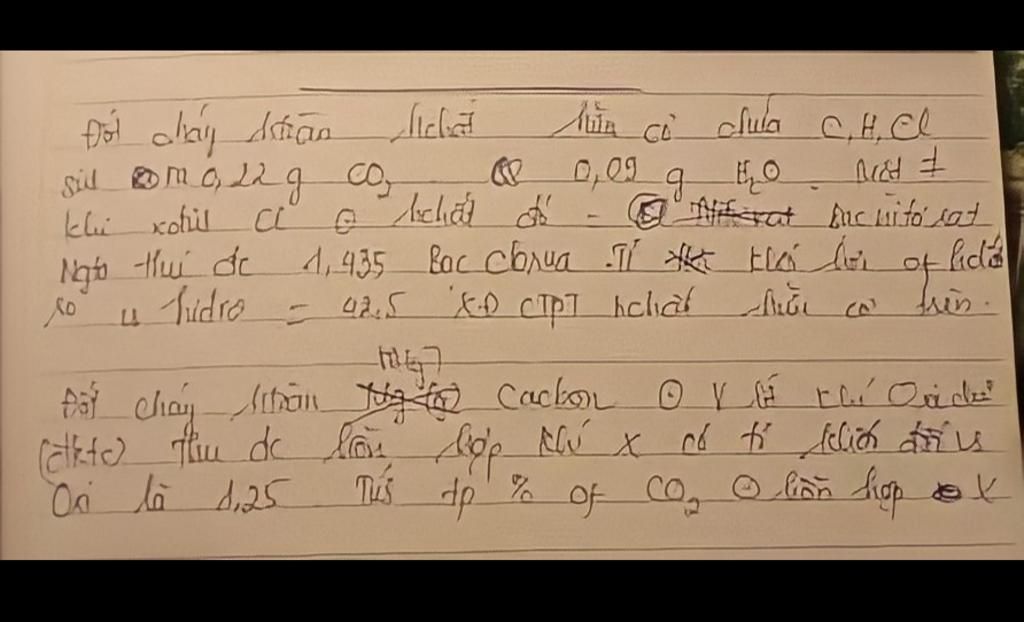 Đốt cháy htoàn hchất hữu cơ chứa C, H, Cl
sih ra 0,22 g CO2 0,09 g H2O. Mặt ≠
khi xđịnh Cl ⊙ hchất đó = Bạc nitơrat
Ngta thu đc 1,435 Bạc Clorua. Tỉ khối hơi of hchất
so v hidro = 42,5 XĐ CTPT hchất hữu cơ trên.
Đốt cháy htoàn Cacbon ⊙ V lít khí Oxi dư
(đktc) Thu đc hỗn hợp khí X có tỉ khối đối vs
Oxi là 1,25 Tính tp % of CO2 ⊙ hỗn hợp X